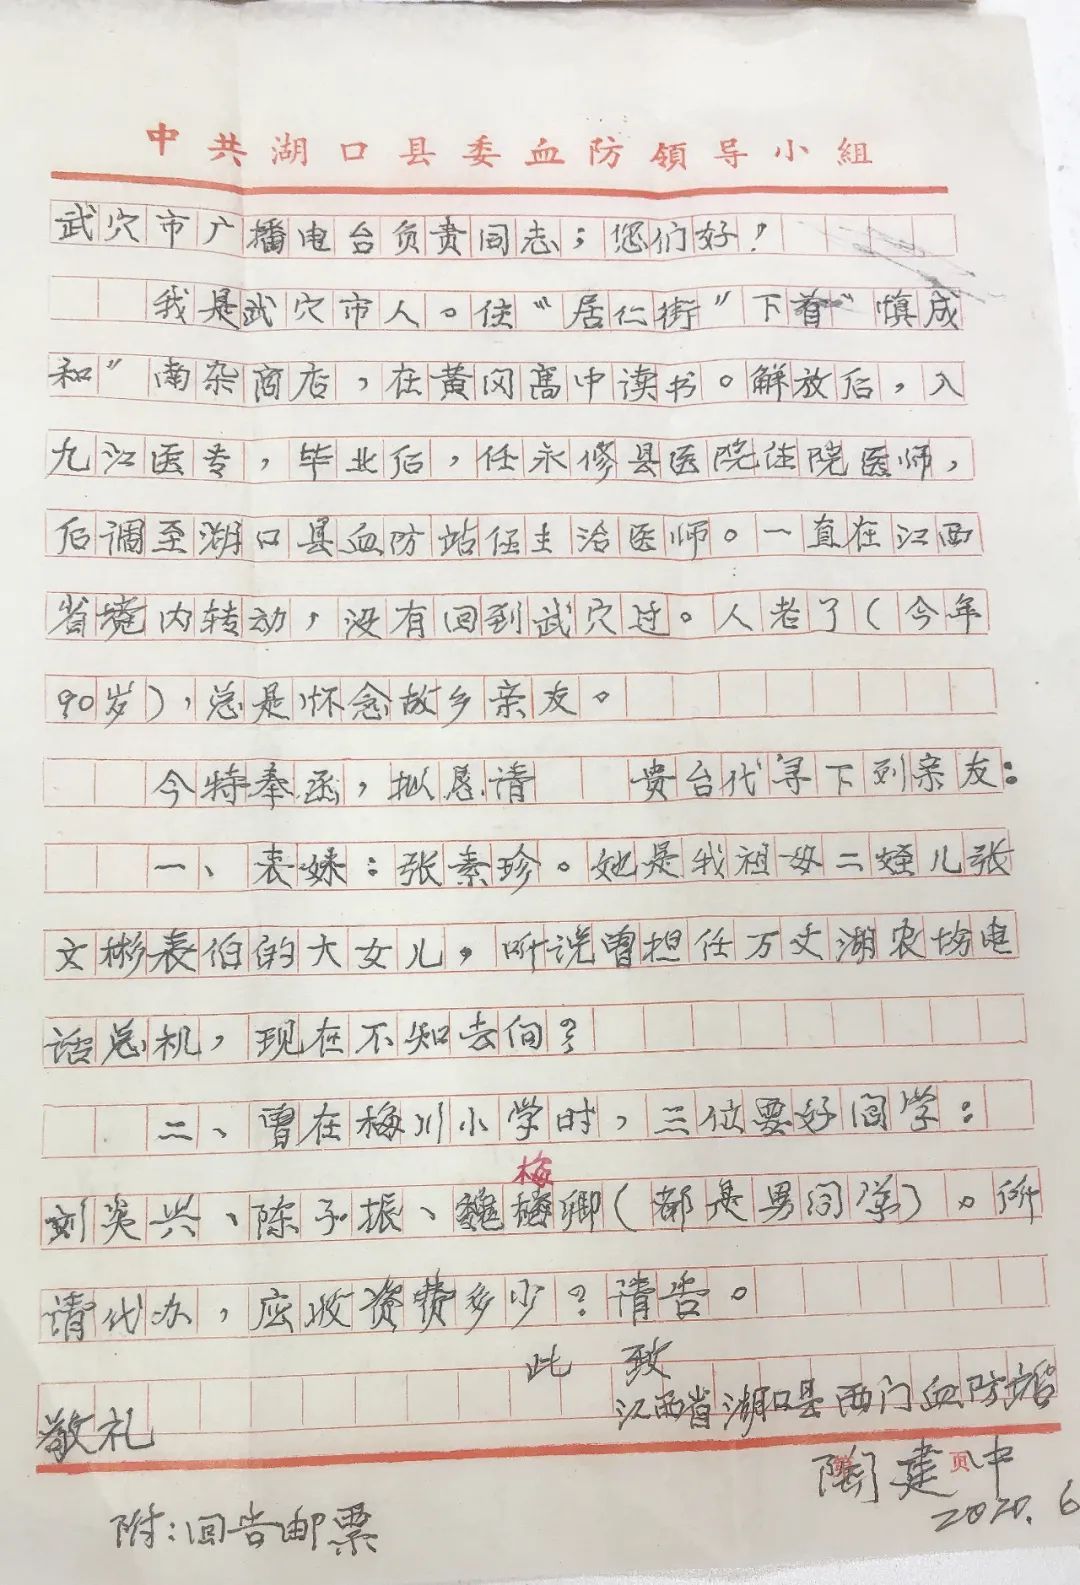 中共湖口县委血防領导小組
武穴市广播电台负责同志；您们好！
我是武穴市人。住“居仁街”下首“慎成
和”南杂商店，在黄冈高中读书。解放后，入
九江医专，毕业后，任永修县医院住院医师，
后调至湖口县血防站任主治医师。一直在江西
省境内转动，没有回到武穴过。人老了（今年
90岁），总是怀念故乡亲友。
今特奉函，拟恳请 贵台代寻下列亲友：
一、表妹：张素珍。她是我祖母二侄儿张
文彬表伯的大女儿，听说曾担任万丈湖农场电
话总机，现在不知去向？
二、曾在梅川小学时，三位要好同学：
梅
刘英兴、陈子振、魏梅卿（都是男同学）。所
请代办，应收资费多少？请告。
此致
敬礼
江西省湖口县西门血防站
页
陶建中
2020.6
附：回告邮票